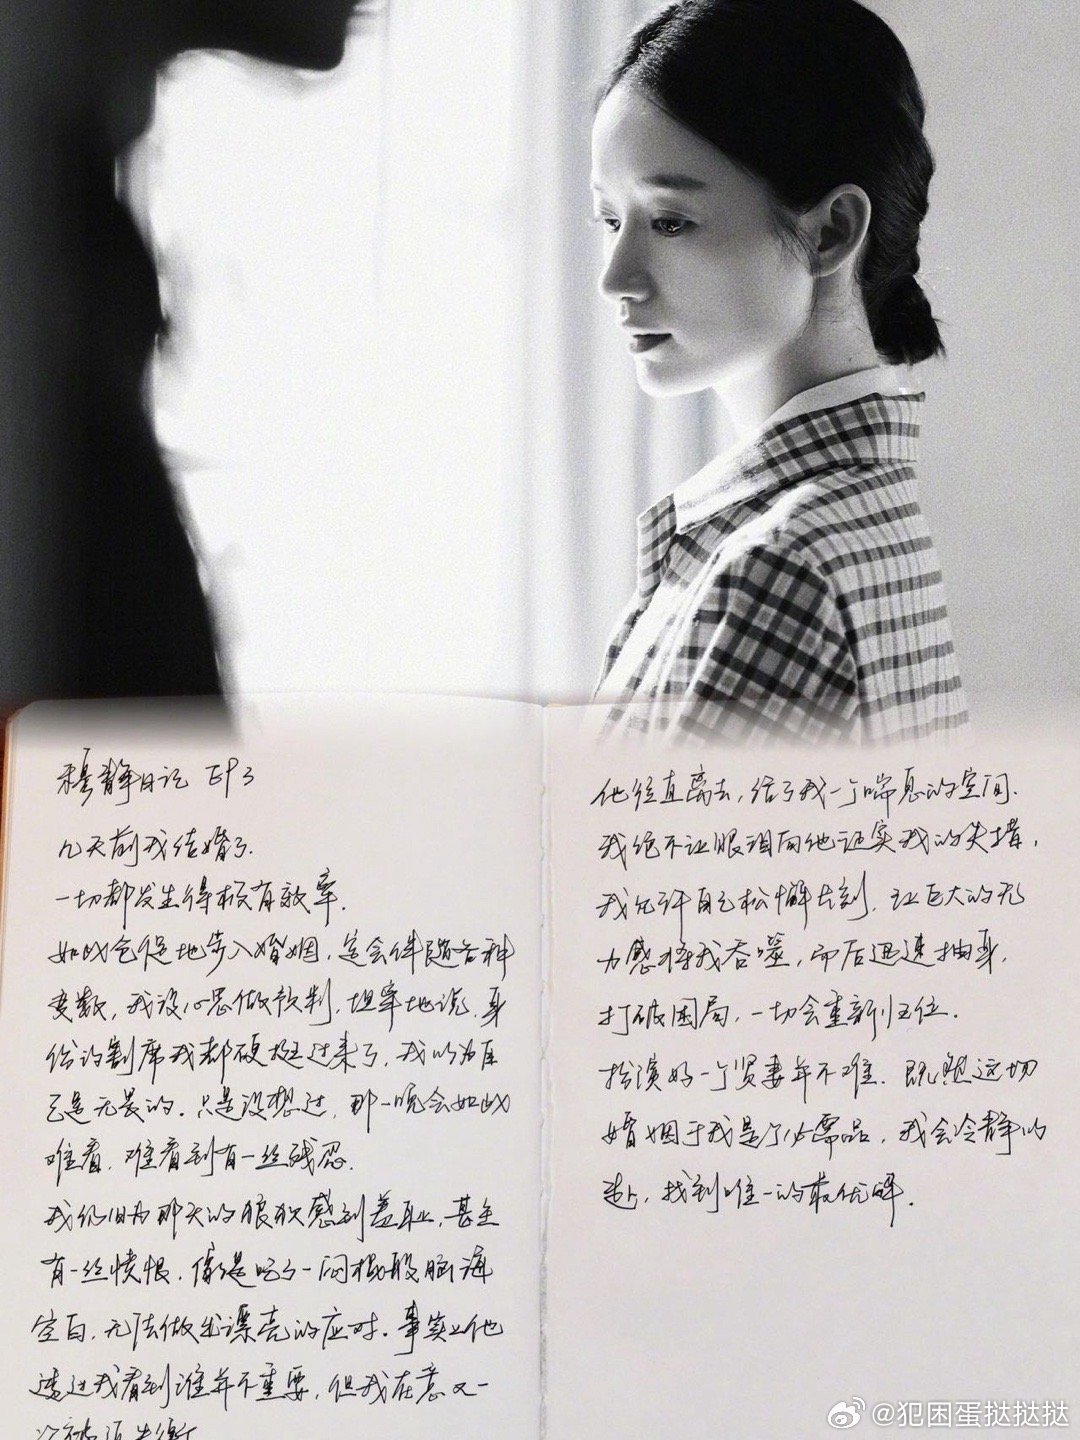 穆静日记 EP3
几天前我结婚了.
一切都发生得极有效率.
如此仓促地步入婚姻，定会伴随各种
变数，我没心思做预判，坦率地说，身
份的割席我都硬挺过来了，我以为自
己是无畏的.只是没想过，那一晚会如此
难看，难看到有一丝残忍.
我仍旧为那天的狼狈感到羞耻，甚至
有一丝愤恨.像是吃了一闷棍般脑海
空白，无法做出漂亮的应对.事实上他
透过我看到谁并不重要，但我在意又一
次被迫失衡
他径直离去，给了我一个喘息的空间.
我绝不让眼泪向他证实我的失措，
我允许自己松懈片刻，让巨大的无
力感将我吞噬，而后迅速抽身.
打破困局，一切会重新归位.
扮演好一个贤妻并不难.既然这切
婚姻于我是个必需品，我会冷静的
找到唯一的最优解.
@犯困蛋挞挞挞